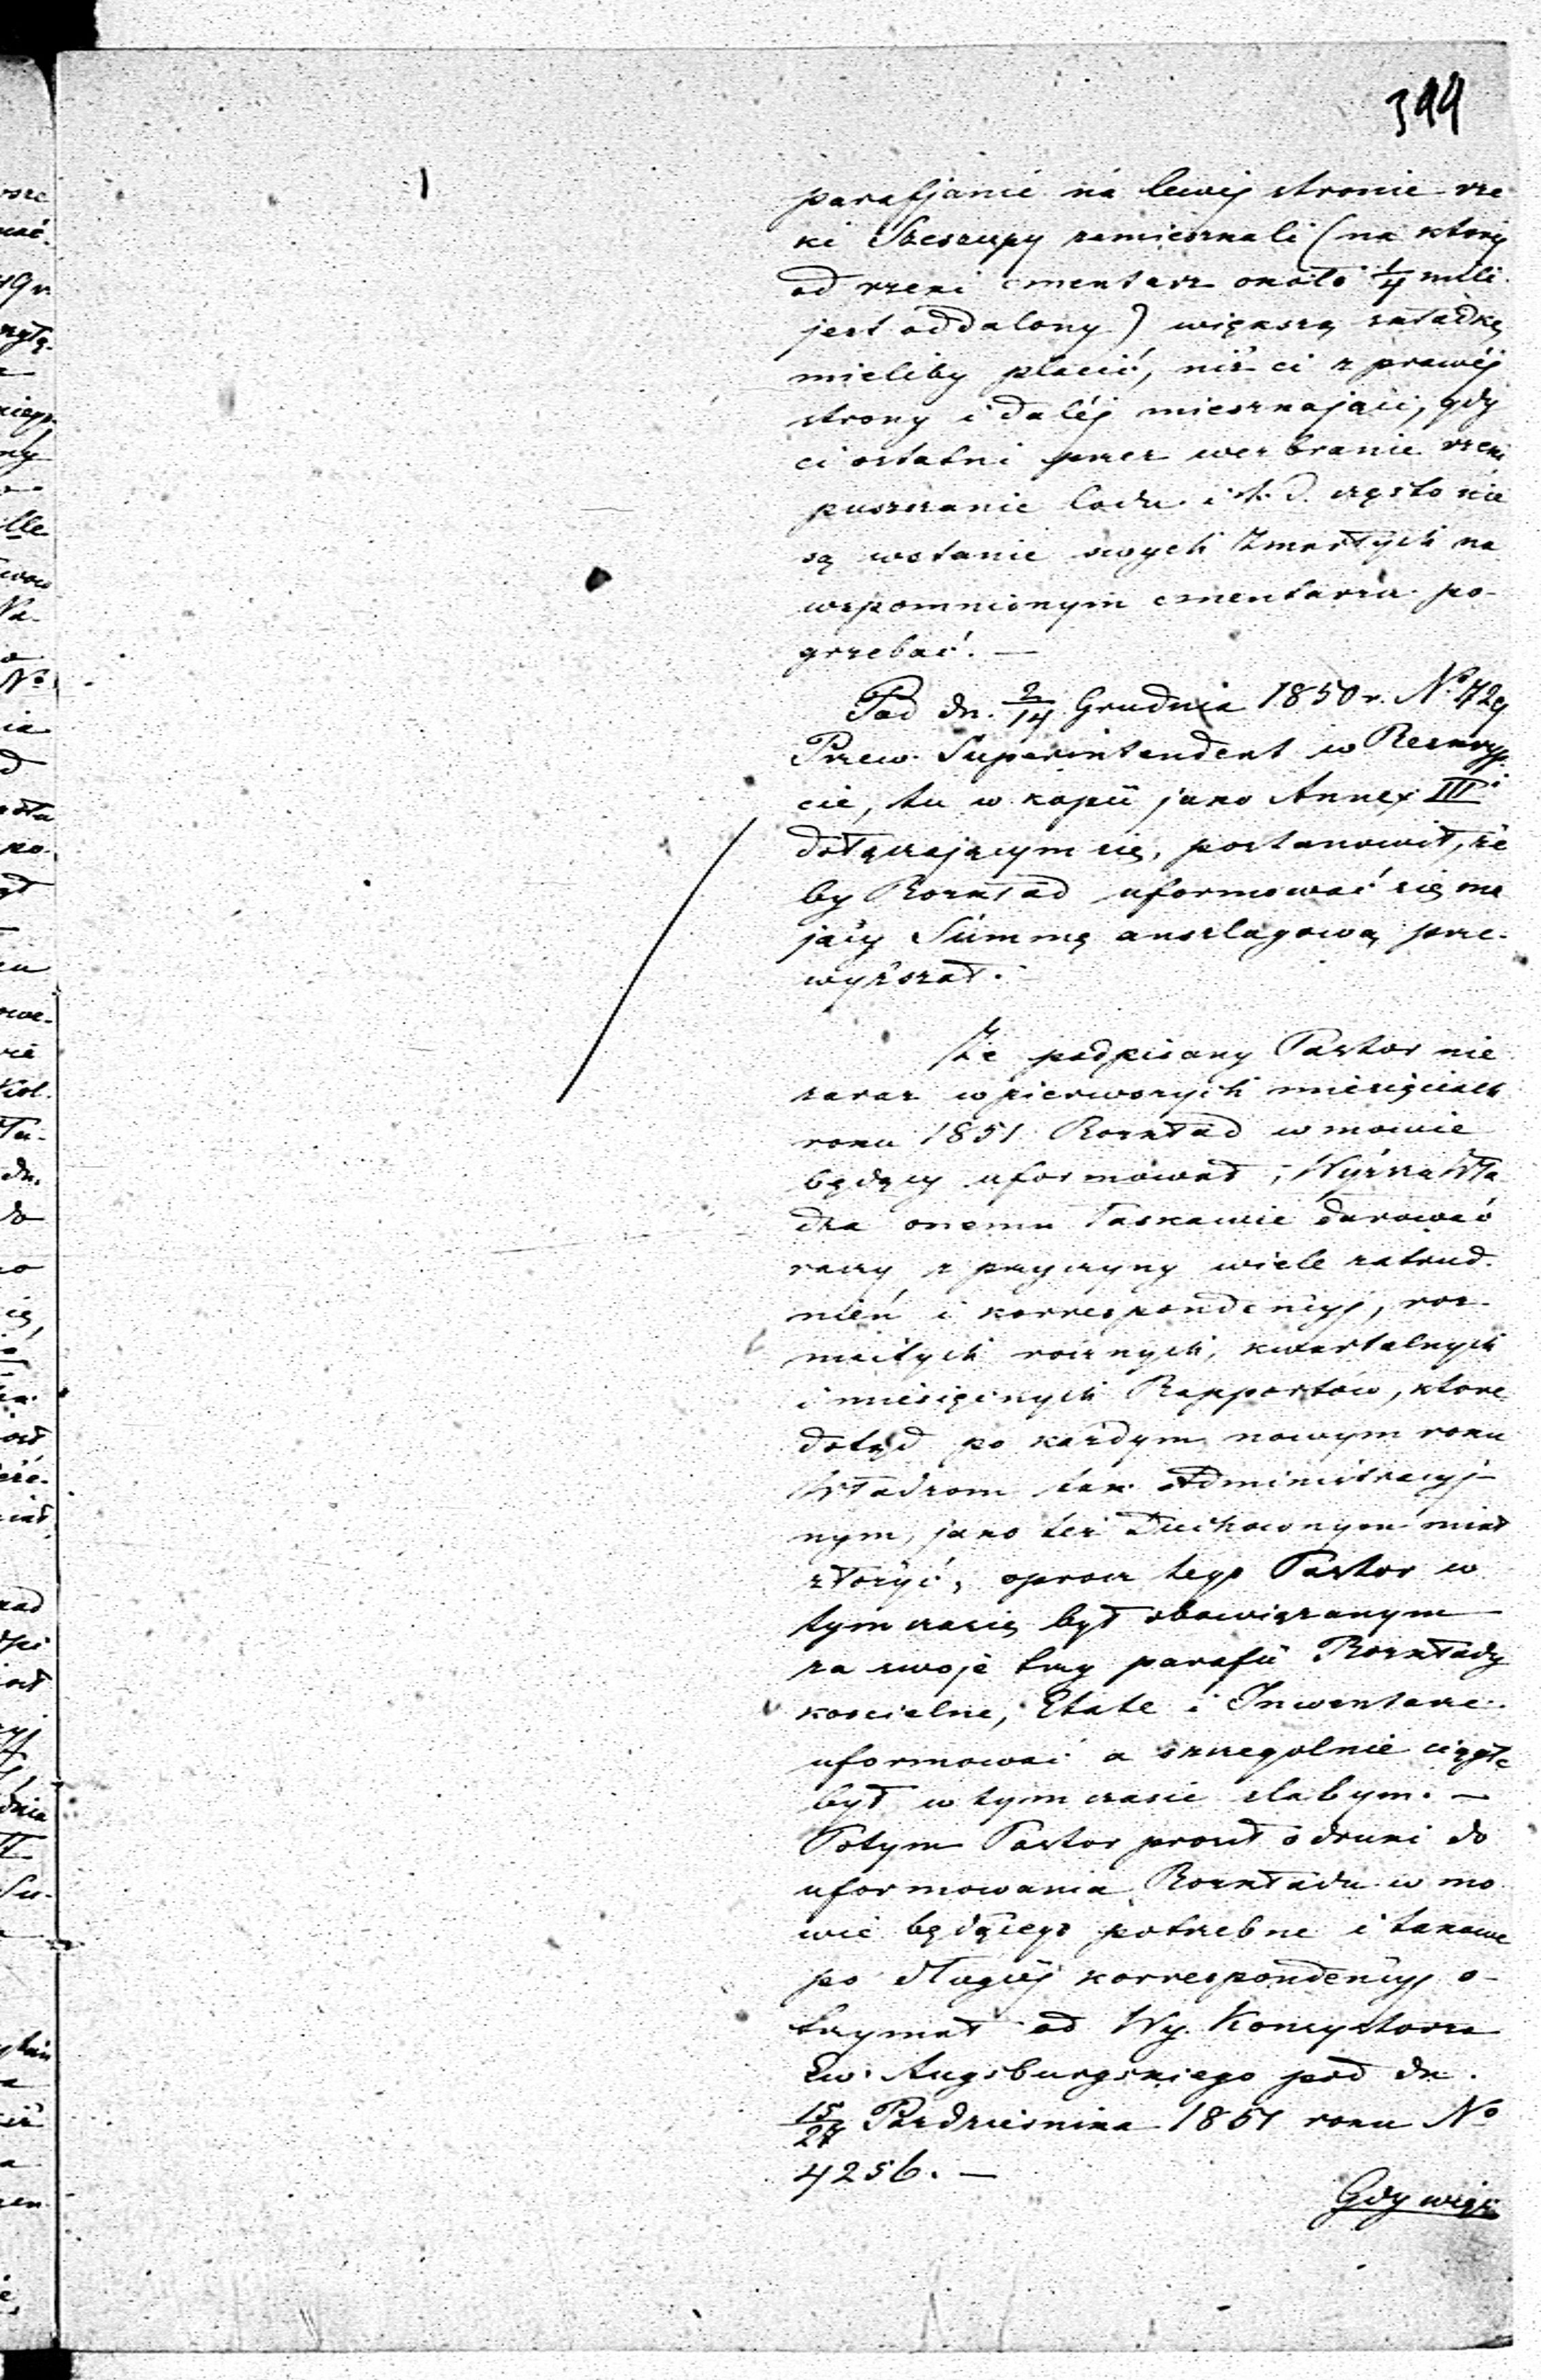 399
parafjanie na lewéj stronie rze
ki Szeszupy zamieszkali (na któréj
od rzeki cmentarz około 1/4 mili
jest oddalony) większą składkę
mieliby płacić, niż ci z prawéj
strony i daléj mieszkający, gdy
ci ostatni przez wezbranie rzeki
puszczanie lodu i t. d. często nie
są wstanie swych Zmarłych na
wspomnionym cmentarzu po-
grzebać. —
Pod dn. 2/14 Grudnia 1850 r. No 729
Przew. Superintendent w Reskryp
cie, tu w kopii jako Annex III
dołączającym się, postanowił, że
by Rozkład uformować się ma
jący Summę anszlagową prze-
wyższał.
Że podpisany Pastor nie
zaraz w pierwszych miesiącach
roku 1851 Rozkład w mowie
będący uformował, Wyższa Wła
dza onemu łaskawie darować
raczy z przyczyny wiele zatrud-
nień i korrespondencyj, roz-
maitych rocznych, kwartalnych
i miesięcznych Rapportów, które
dotąd po każdym nowym roku
Władzom tak Administracyj-
nym, jako też Duchownym miał
złożyć, oprocz tego Pastor w
tym czasie był obowiązanym
za swoje trzy parafii Rozkłady
koscielne, Etate i Inwentarze
uformować a szczegolnie ciągle
był w tym czasie słabym. —
Potym Pastor prosił o druki do
uformowania Rozkładu w mo
wie będącego potrzebne i takowe
po długiéj korrespondencyj o-
trzymał od Wy. Konsystorza
Ew. Augsburgskiego pod dn.
15/27 Pazdziernika 1851 roku No
4256. —
Gdy więc